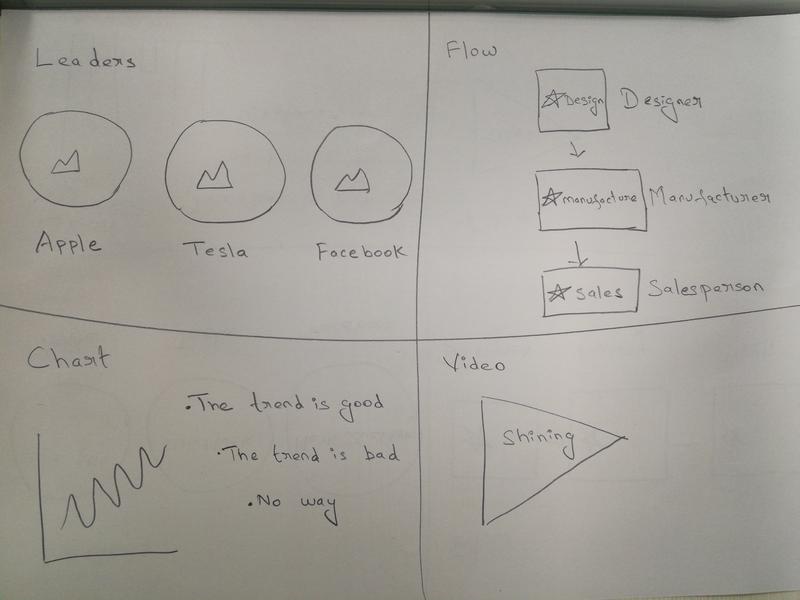 Leaders
Apple
Tesla
Facebook
Flow
Design
Designer
manufacture
Manufacturer
Sales
Salesperson
Chart
.The trend is good
.The trend is bad
.No way
Video
Shining